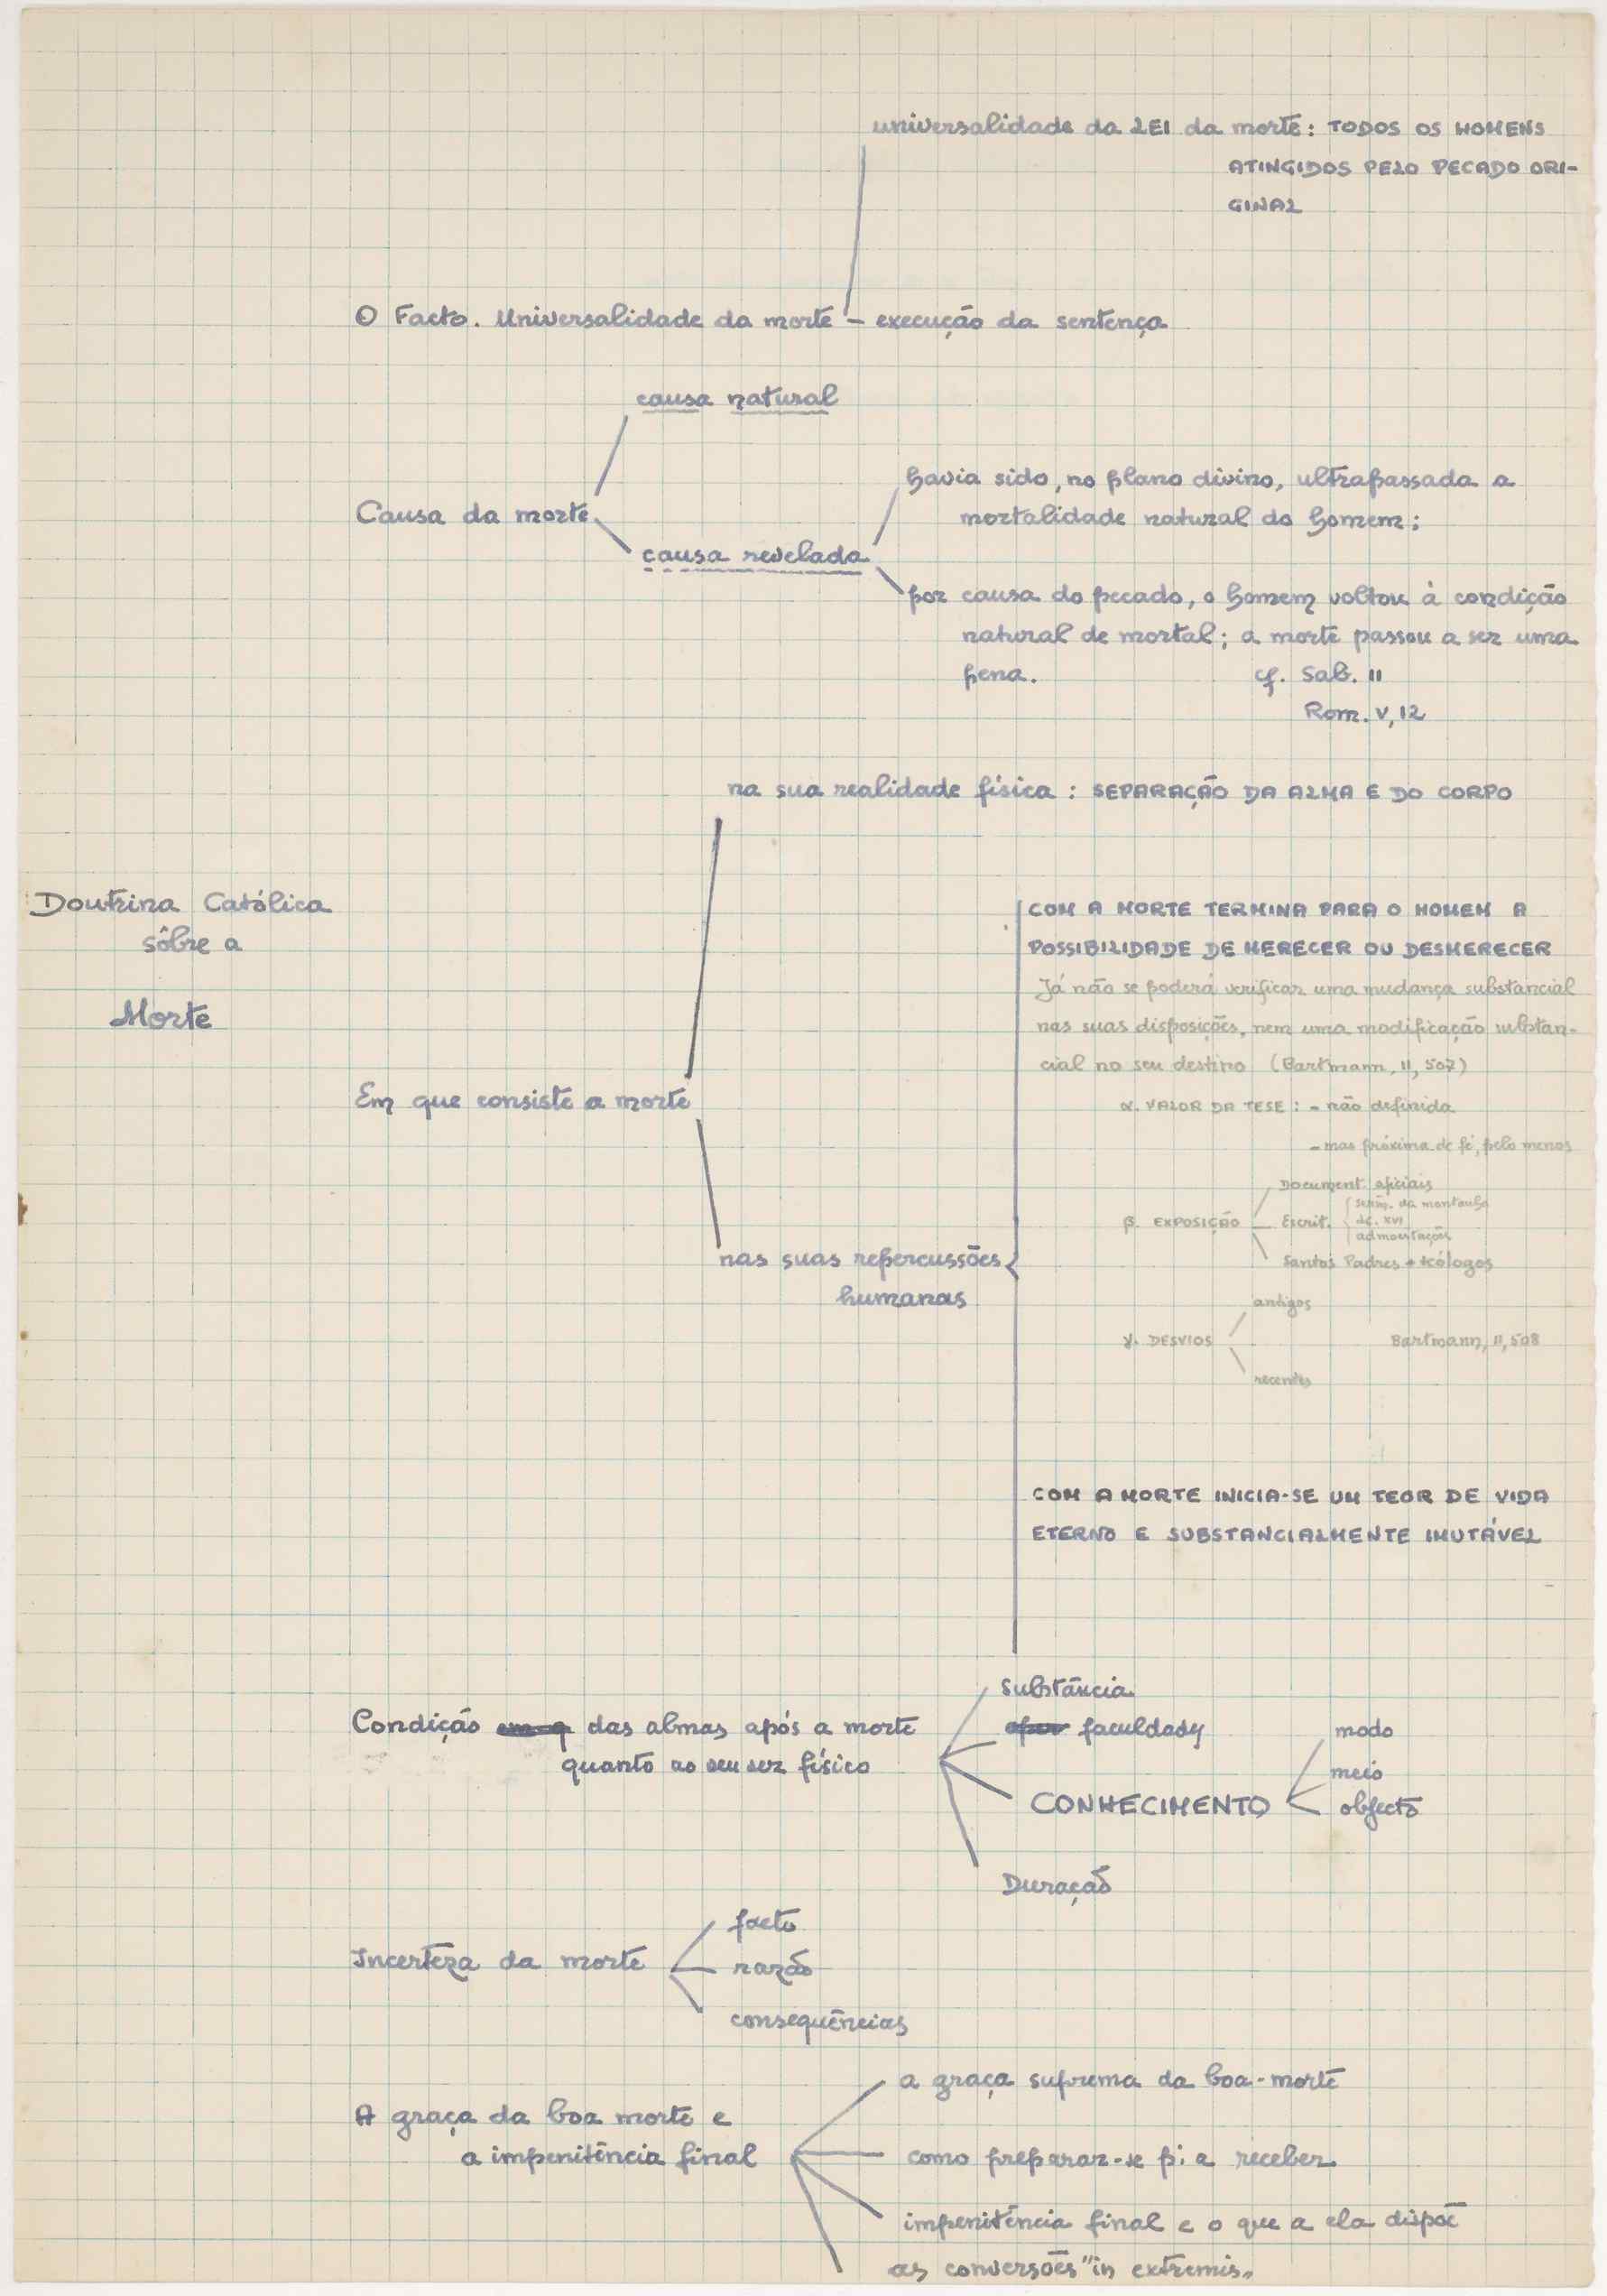 universalidade da LEI da morte: TODOS OS HOMENS
ATINGIDOS PELO PECADO ORI-
GINAL
O Facto. Universalidade da morte – execução da sentença
causa natural
Causa da morte
havia sido, no plano divino, ultrapassada a
mortalidade natural do homem;
causa revelada
por causa do pecado, o homem voltou à condição
natural de mortal; a morte passou a ser uma
pena. cf. Sab. II
Rom. V, 12
na sua realidade física: SEPARAÇÃO DA ALMA E DO CORPO
Doutrina Católica
sôbre a
Morte
COM A MORTE TERMINA PARA O HOMEM A
POSSIBILIDADE DE MERECER OU DESMERECER
Já não se poderá verificar uma mudança substancial
nas suas disposições, nem uma modificação substan-
cial no seu destino (Bartmann, II, 507)
Em que consiste a morte
α. VALOR DA TESE: - não definida
- mas próxima de fé, pelo menos
β. EXPOSIÇÃO
Document. oficiais
Escrit.
serm. da montanha
Lc. XVI
admoestações
Santos Padres + teólogos
nas suas repercussões
humanas
γ. DESVIOS
antigos
Bartmann, II, 508
recentes
COM A MORTE INICIA-SE UM TEOR DE VIDA
ETERNO E SUBSTANCIALMENTE IMUTÁVEL
Condição em q das almas após a morte
quanto ao seu ser físico
Substância
faculdades
CONHECIMENTO
modo
meio
objecto
Duração
Incerteza da morte
facto
razão
consequências
A graça da boa morte e
a impenitência final
a graça suprema da boa-morte
como preparar-se p: a receber
impenitência final e o que a ela dispõe
as conversões "in extremis"